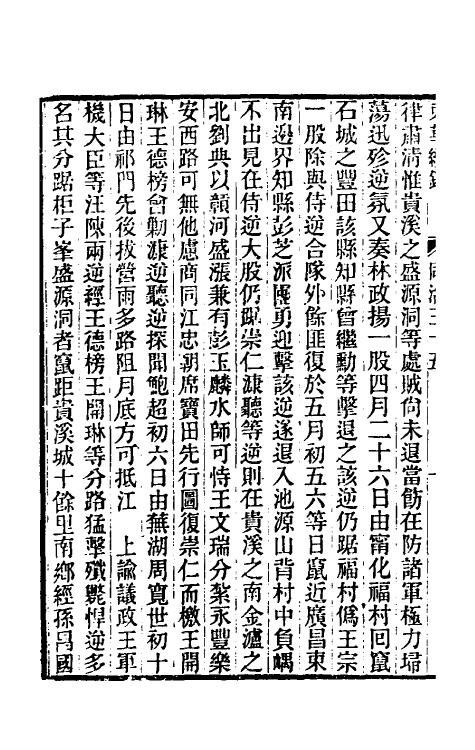 律肅清惟貴溪之盛源洞等處賊尙未退當飭在防諸軍極力埽
蕩迅殄逆氛又奏林政揚一股四月二十六日由甯化福村回竄
石城之豐田該縣知縣曾繼勳等擊退之該逆仍踞福村僞王宗
一股除與侍逆合隊外餘匪復於五月初五六等日竄近廣昌東
南邊界知縣彭芝派團勇迎擊該逆遂退入池源山背村中負嵎
不出見在侍逆大股仍踞崇仁溓聽等逆則在貴溪之南金瀘之
北劉典以韻河盛漲兼有彭玉麟水師可恃王文瑞分紮永豐樂
安西路可無他慮商同江忠朝席寶田先行圖復崇仁而檄王開
琳王德榜會勦溓逆聽逆探聞鮑超初六日由蕪湖周寬世初十
日由祁門先後拔營雨多路阻月底方可抵江　上諭議政王軍
機大臣等汪陳兩逆經王德榜王開琳等分路猛擊殲斃悍逆多
名其分踞柜子峯盛源洞者竄距貴溪城十餘里南鄉經孫昌國